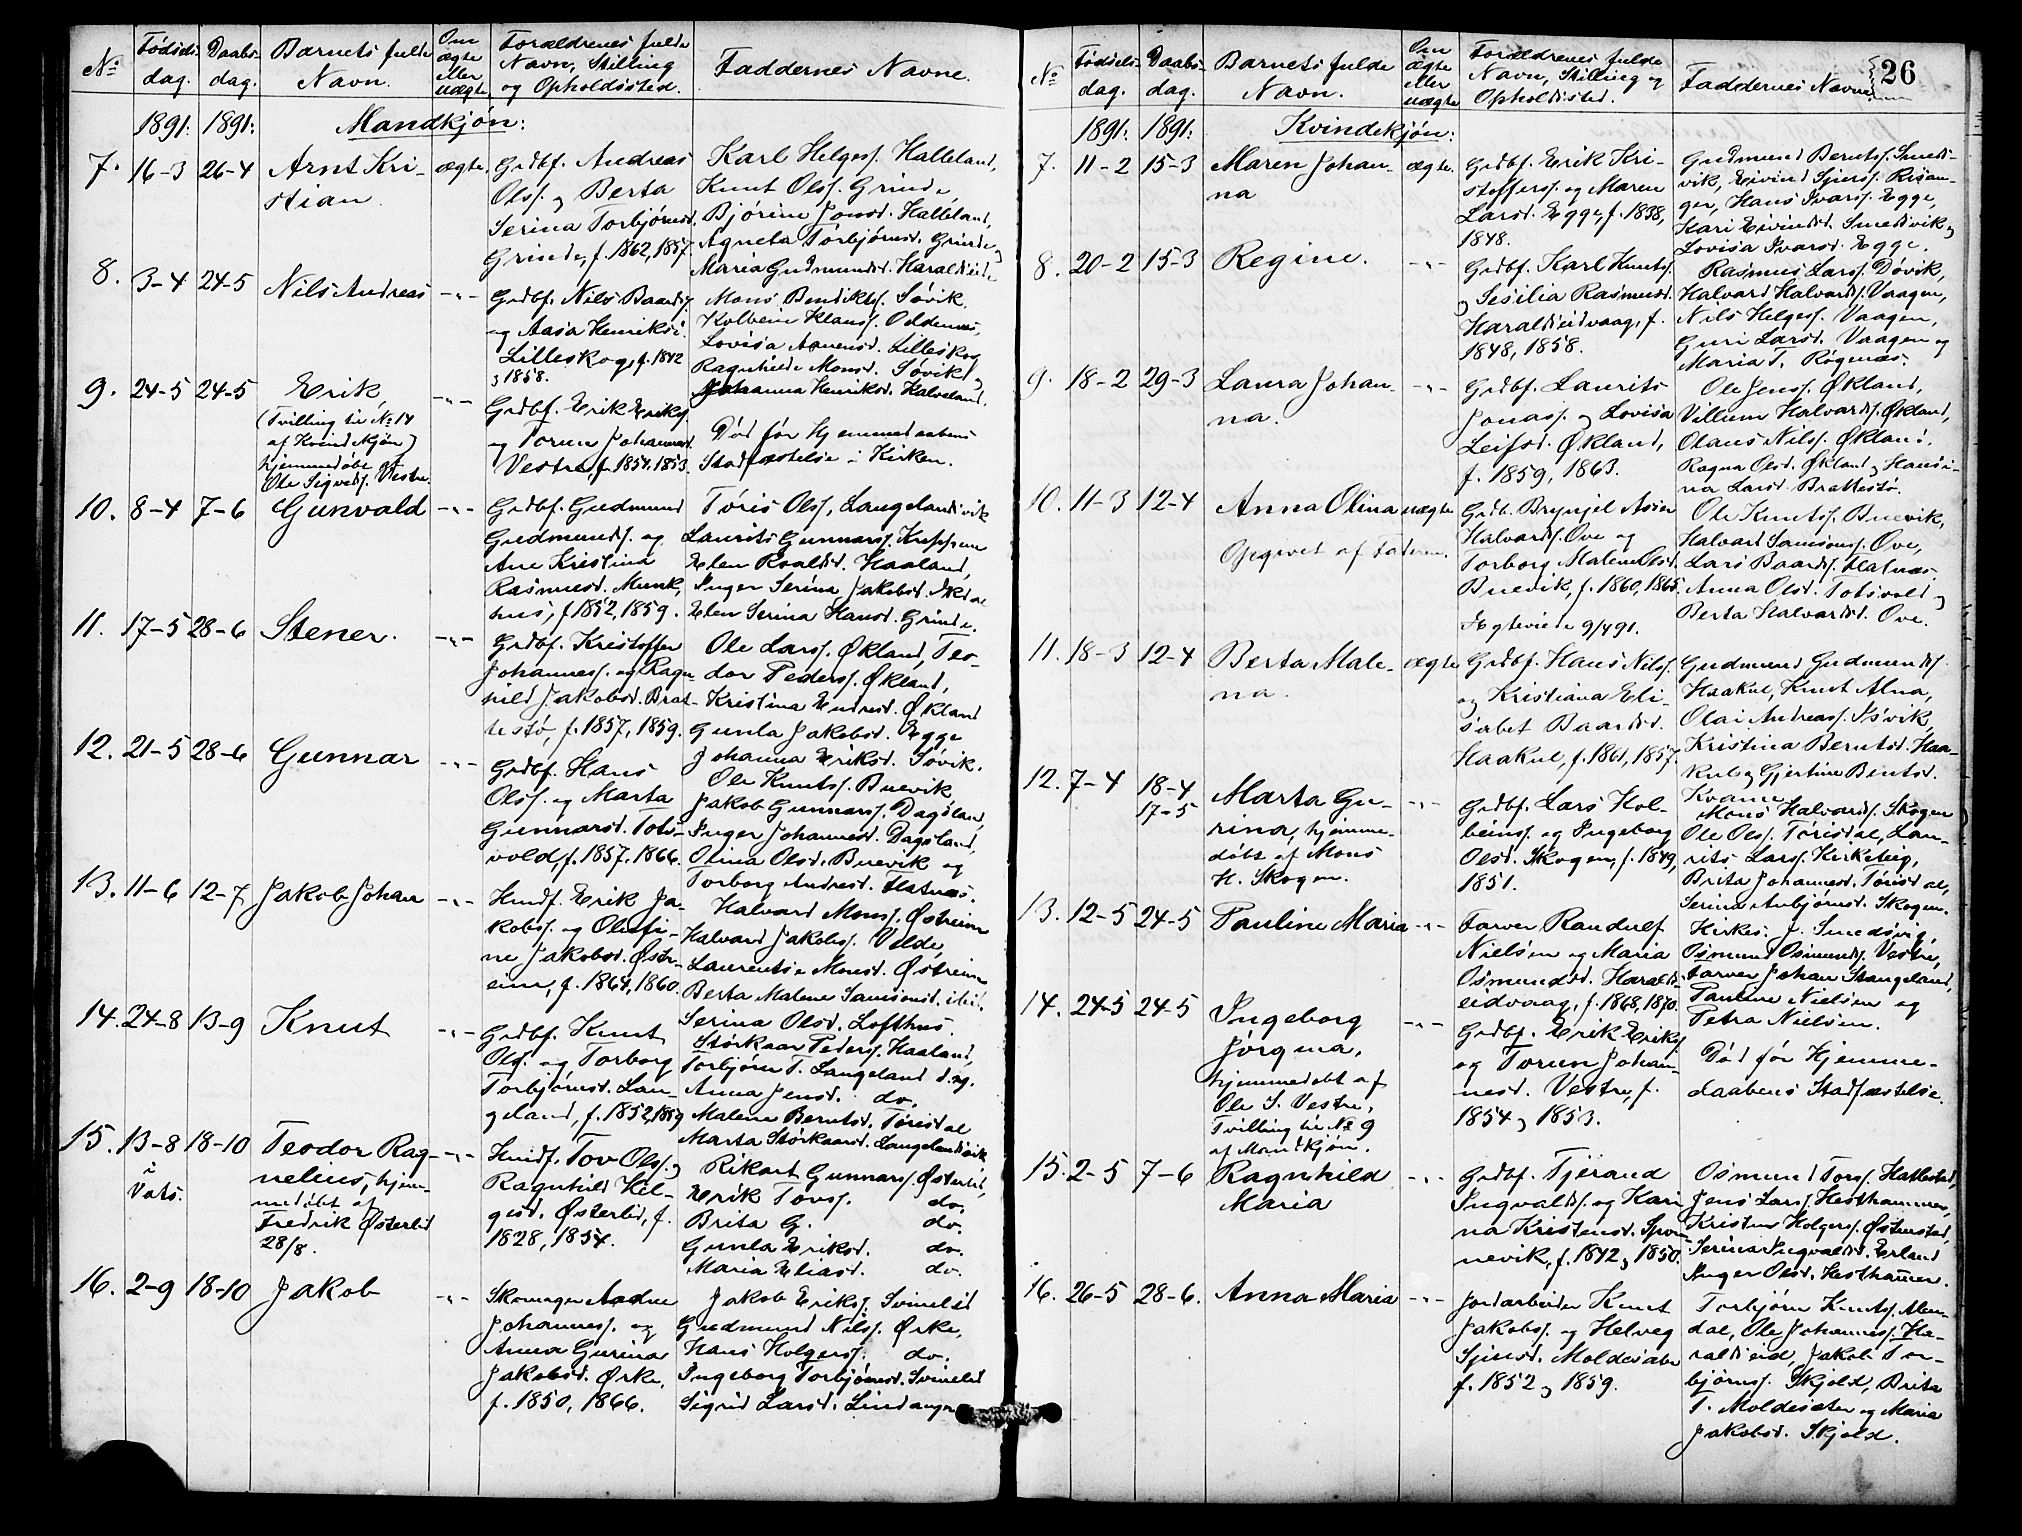 №
Fødsels-
dag.
Daabs-
dag.
Barnets fulde
Navn.
Om
ægte
eller
uægte
Forældrenes fulde
Navn, Stilling
og Opholdssted.
Faddernes Navne.
1891: 1891: Mandkjøn:
7. 16-3 26-4
Arnt Kri-
stian.
ægte.
Grdbf. Andreas
Olss. og Berta
Serina Torbjørnsd.
Grinde, f. 1862, 1857.
Karl Helgess. Halleland,
Knut Olss. Grinde,
Bjørine Jonsd. Halleland,
Agneta Torbjørnsd. Grinde og
Maria Gudmundsd. Haraldseide
8. 3-4 24-5
Nils Andreas
-"-
Grdbf. Nils Baards.
og Aasa Henriksd.
Lilleskog, f. 1842
og 1858.
Mons Bendikts. Søvik,
Kolbein Klauss. Oddenæs,
Lovisa Lilleskog
Ragnhilde Monsd. Søvik og
Johanna Henriksd. Halveland.
9. 24-5 24-5
Erik,
(Tvilling til № 14
af Kvindkjøn)
hjemmedøbt af
Ole Sigveds. Vestre.
-"-
Grdbf. Erik Eriks.
og Torun Johannesd.
Vestre, f. 1854, 1853.
Død før Hjemmedaabens
Stadfæstelse i Kirken.
10. 8-4 7-6
Gunvald
-"-
Grdbf. Gudmund
Gudmunds. og
Ane Kristina
Rasmusd. Munk-
hus, f. 1852, 1859.
Tøris Olss. Langelandsvik
Laurits Gunnarss.
Elen Roaldsd. Haaland,
Inger Serina Jakobsd.
Elen Serina Hansd. Grinde.
11. 17-5 28-6
Stener.
-"-
Grdbf. Kristoffer
Johanness. og Ragn-
hild Jakobsd. Brat-
testø, f. 1857, 1859.
Ole Larss. Økland, Teo-
dor Pederss. Økland,
Kristina Endresd. Økland
Gunla Jakobsd. Egge
Johanna Eriksd. Søvik.
12. 21-5 28-6
Gunnar
-"-
Grdbf. Hans
Olss. og Marta
Gunnarsd. Tots-
vold, f. 1857, 1866.
Ole Knuts. Buevik
Jakob Gunnarss. Dagsland,
Inger Johannesd. Dagsland,
Olina Olsd. Buevik og
Torborg Andresd. Flatnæs.
13. 11-6 12-7
Jakob Johan
-"-
Husmf. Erik Ja-
kobs. og Olufi-
ne Jakobsd. Østre-
eim, f. 1864, 1860.
Halvard Monss. Østreim
Halvard Jakobs. Velde,
Laurentse Monsd. Østreim
Berta Malene Samsonsd. ibid.
Serina Olsd. Lofthus.
14. 24-8 13-9
Knut
-"-
Grdbf. Knut
Olss. og Torborg
Torbjørnsd. Lan-
geland, f. 1852, 1859
Størkaar Pederss. Haaland,
Torbjørn T. Langeland d. yg.
Anna Jensd. do.
Malene Berntsd. Tørisdal
Marta Størkaarsd. Langelandsvik
15. 13-8 18-10
i
Vats.
Teodor Rag-
nelius, hjem-
medøbt af
Fredrik Østerlid
28/8.
-"-
Husmf. Tov Olss. og
Ragnhild Hel-
gesd. Østerlid, f.
1828, 1854.
Rikart Gunnarss. Østerlid,
Erik Tovs. do.
Brita G. do.
Gunla Eriksd. do.
Maria Eliasd. do.
16. 2-9 18-10
Jakob
-"-
Skomager Aadne
Johanness. og
Anna Gurina
Jakobsd. Ørke,
f. 1850, 1866.
Jakob Eriks. Svinelid
Gudmund Nilss. Ørke,
Hans Holgerss. do.
Ingeborg Torbjørnsd. Svinelid
Sigrid Larsd. Lindanger
26
№
Fødsels-
dag.
Daabs-
dag.
Barnets fulde
Navn.
Om
ægte
eller
uægte
Forældrenes fulde
Navn, Stilling og
Opholdssted.
Faddernes Navne
1891: 1891: Kvindekjøn:
7. 11-2 15-3
Maren Johan-
na
ægte.
Grdbf. Erik Kri-
stofferss. og Maren
Larsd. Egge, f. 1838,
1848.
Gudmund Berntss. Smeds-
vik, Eivind Risan-
ger, Hans Ivarss. Egge,
Kari Eivindsd. Smedsvik og
Lovisa Ivarsd. Egge.
8. 20-2 15-3
Regine.
-"-
Grdbf. Karl Knuts.
og Sesilia Rasmusd.
Haraldseidvaag, f.
1848, 1858.
Rasmus Larss. Døvik,
Halvard Halvards. Vaagen,
Nils Helgess. Vaagen,
Guri Larsd. Vaagen og
Maria T. Røgenæs.
9. 18-2 29-3
Laura Johan-
na.
-"-
Grdbf. Laurits
Jonass. og Lovisa
Leifsd. Økland,
f. 1859, 1863.
Ole Jenss. Økland,
Villum Halvards. Økland,
Olaus Nilss. Økland,
Ragna Olsd. Økland og Hansi-
na Larsd. Brattestø.
10. 11-3 12-4
Anna Olina
Opgivet af Faderen.
uægte
Grdb. Brynjel Asser
Halvards. Ove og
Torborg Malene Olsd.
Buevik, f. 1860, 1865.
Egteviede 9/4 91.
Ole Knuts. Buevik,
Halvard Samsons. Ove,
Lars Baards. Flatnæs.
Anna Olsd. Totsvold og
Berta Halvardsd. Ove.
11. 18-3 12-4
Berta Male-
na.
ægte
Grdbf. Hans Nilss.
og Kristiana Eli-
sabet Baardsd.
Haakul, f. 1861, 1857.
Gudmund Gudmunds.
Haakul, Knut Alna,
Olai Andreass. Isvik,
Kristina Berntsd. Haa-
kul og Gjertine Bentsd.
Kvame.
12. 7-4 18-4
17-5
Marta Gu-
rina, hjemme-
døbt af Mons
H. Skogen.
-"-
Grdbf. Lars Kol-
beins. og Ingeborg
Olsd. Skogen, f. 1849,
1851.
Mons Halvards. Skogen
Ole Olss. Tørisdal, Lau-
rits Larss. Kirketeig,
Brita Johannesd. Tørisdal,
Serina Anbjørnsd. Skogen.
13. 12-5 24-5
Pauline Maria
-"-
Farver Randulf
Nielsen og Maria
Osmundsd. Haralds-
eidvaag, f. 1868, 1870.
Kirkes. J. Smedsvig,
Osmund Osmunds. Vestre,
Farver Johan Stangeland,
Pauline Nielsen og
Petra Nielsen.
14. 24-5 24-5
Ingeborg
Jørgina,
hjemmedøbt af
Ole S. Vestre,
Tvilling til № 9
af Mandkjøn.
-"-
Grdbf. Erik Eriks.
og Torun Johan-
nesd. Vestre, f.
1854 og 1853.
Død før Hjemme-
daabens Stadfæstelse.
15. 2-5 7-6
Ragnhild
Maria
-"-
Grdbf. Tjerand
Ingvalds. og Kari-
na Kristensd. Spon-
nevik, f. 1842 og 1850.
Osmund Torss. Hatlestad,
Jens Larss. Hesthammer,
Kristen Holgerss. Østenstad,
Serina Ingvaldsd. Erland
Inger Olsd. Hesthammer.
16. 26-5 28-6.
Anna Maria
-"-
Jordarbeider Knut
Jakobs. og Helveg
Moldesæter
f. 1852 og 1859.
Torbjørn Knuts. Alen-
dal, Ole Johanness. Ha-
raldseid, Jakob Tor-
bjørns. Skjold, Brita
T. Moldesæter og Maria
Jakobsd. Skjold.